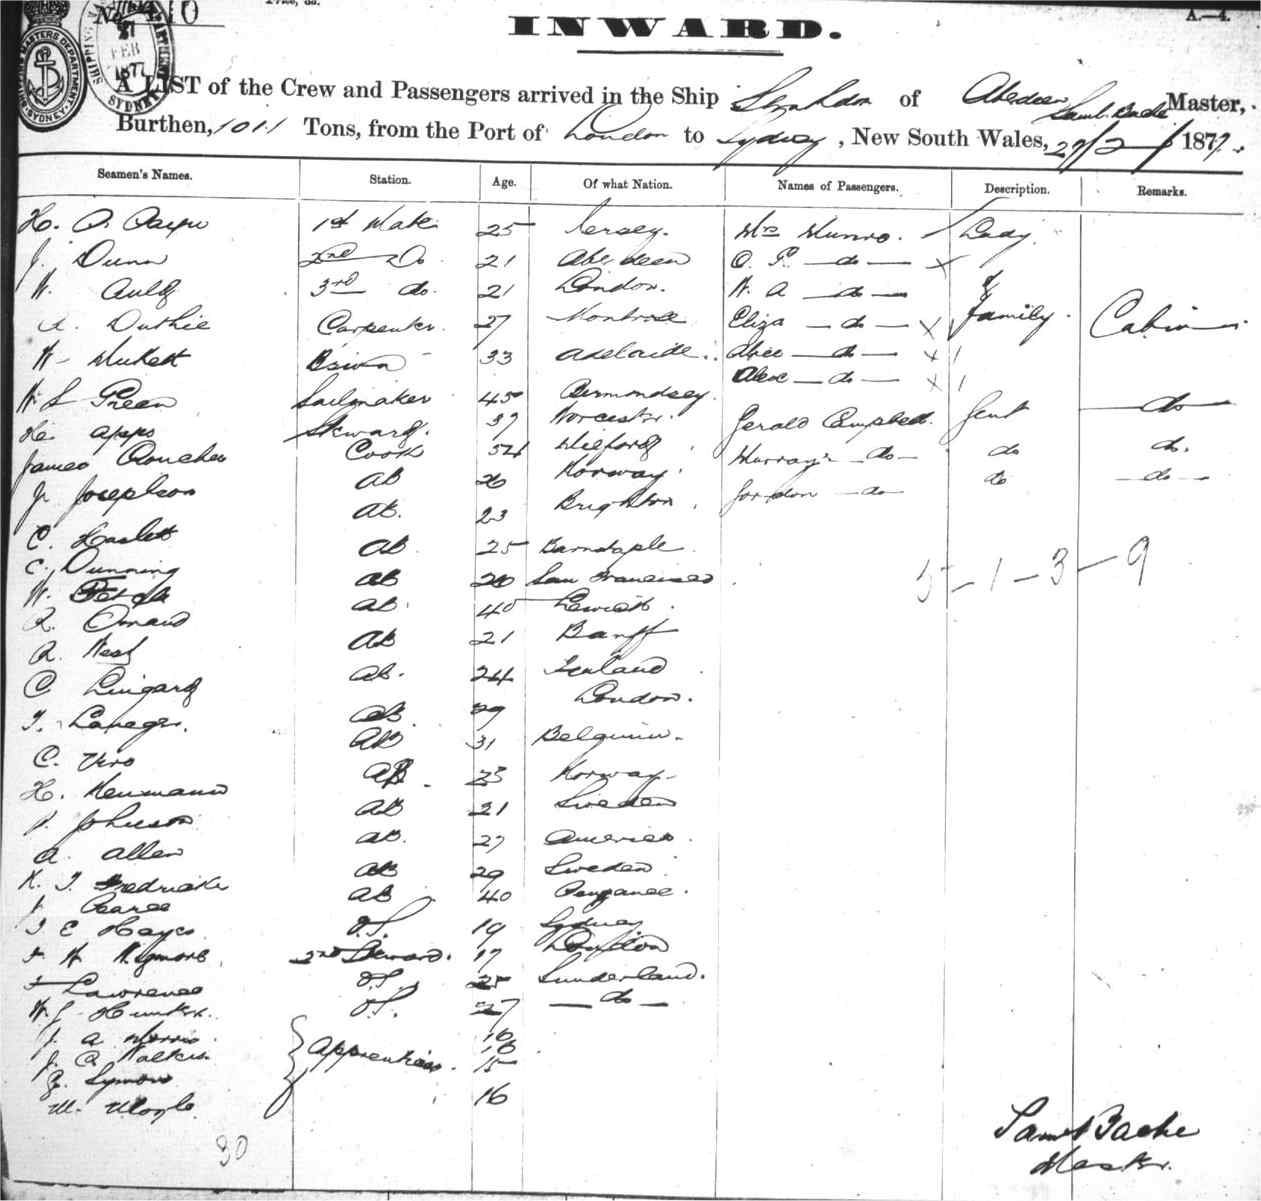 A.—4.
INWARD.
SHIPPING MASTERS DEPARTMENT SYDNEY
21 FEB 1877
A LIST of the Crew and Passengers arrived in the Ship of Aberdeen Saml. Bache Master,
Burthen, 1011 Tons, from the Port of London to Sydney, New South Wales, 1877.
Seamen's Names. Station. Age. Of what Nation. Names of Passengers. Description. Remarks.
H. 1st Mate 25 Jersey. Mrs Munro. Lady
J. Dunn 2nd Do. 21 Aberdeen O. P. — do —
W. Auld 3rd do. 21 London. W. A — do — &
A. Duthie Carpenter 27 Montrose Eliza — do — x Family. Cabin
W. Bosun 33 Adelaide. — do — x
Alex — do — x
W S Green Sailmaker 45 Bermondsey.
H. Apps Steward. 37 Worcester. Gerald Campbell. Gent — do —
James Cook Milford Murray — do — do do.
J. Josephson AB 26 Norway. Gordon — do — do — do —
C. Haslett AB. 23 Brighton.
C. Dunning AB 25 Barnstaple 5 – 1 – 3 – 9
W. AB 20 San Francisco
R. Omand AB. 40 Lerwick.
A. West AB 21 Banff
C. Lingard AB. 24 Ireland
T. AB 29 London.
C. AB 31 Belgium.
H. Neumann AB. 23 Norway
Johnson AB 21 Sweden
A. Allen AB. 27 America.
K. T. Fredricks AB 29 Sweden
Pearce AB 40 Penzance.
T E Hayes O.S. 19 Sydney
W. 2nd Steward. 17 London
Lawrence O.S. 25 Sunderland.
W J Hunter. O.S. 27 — do —
J. A. Morris Apprentices. 16
J. Walker 16
Symons 15
W. 16
30
Saml Bache
Master.